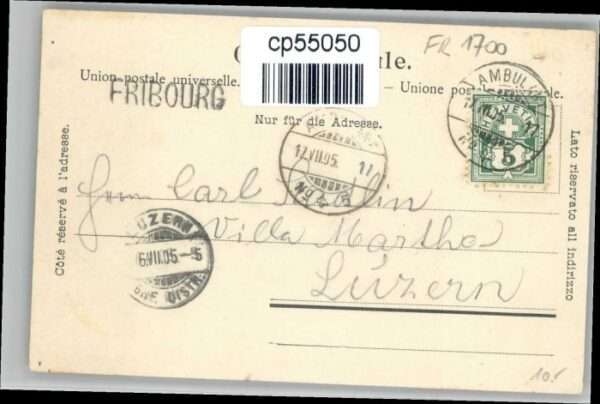 cp55050
FR 1700
Union postale universelle. — Unione postale universale.
FRIBOURG
AMBULANT
Nur für die Adresse.
17.VII.05. 11
No 2
5
Côté réservé à l'adresse.
Lato riservato all indirizzo
Herrn Carl
Villa Martha
Luzern
LUZERN
VII.05.–5
BRF. DISTR.
10.-